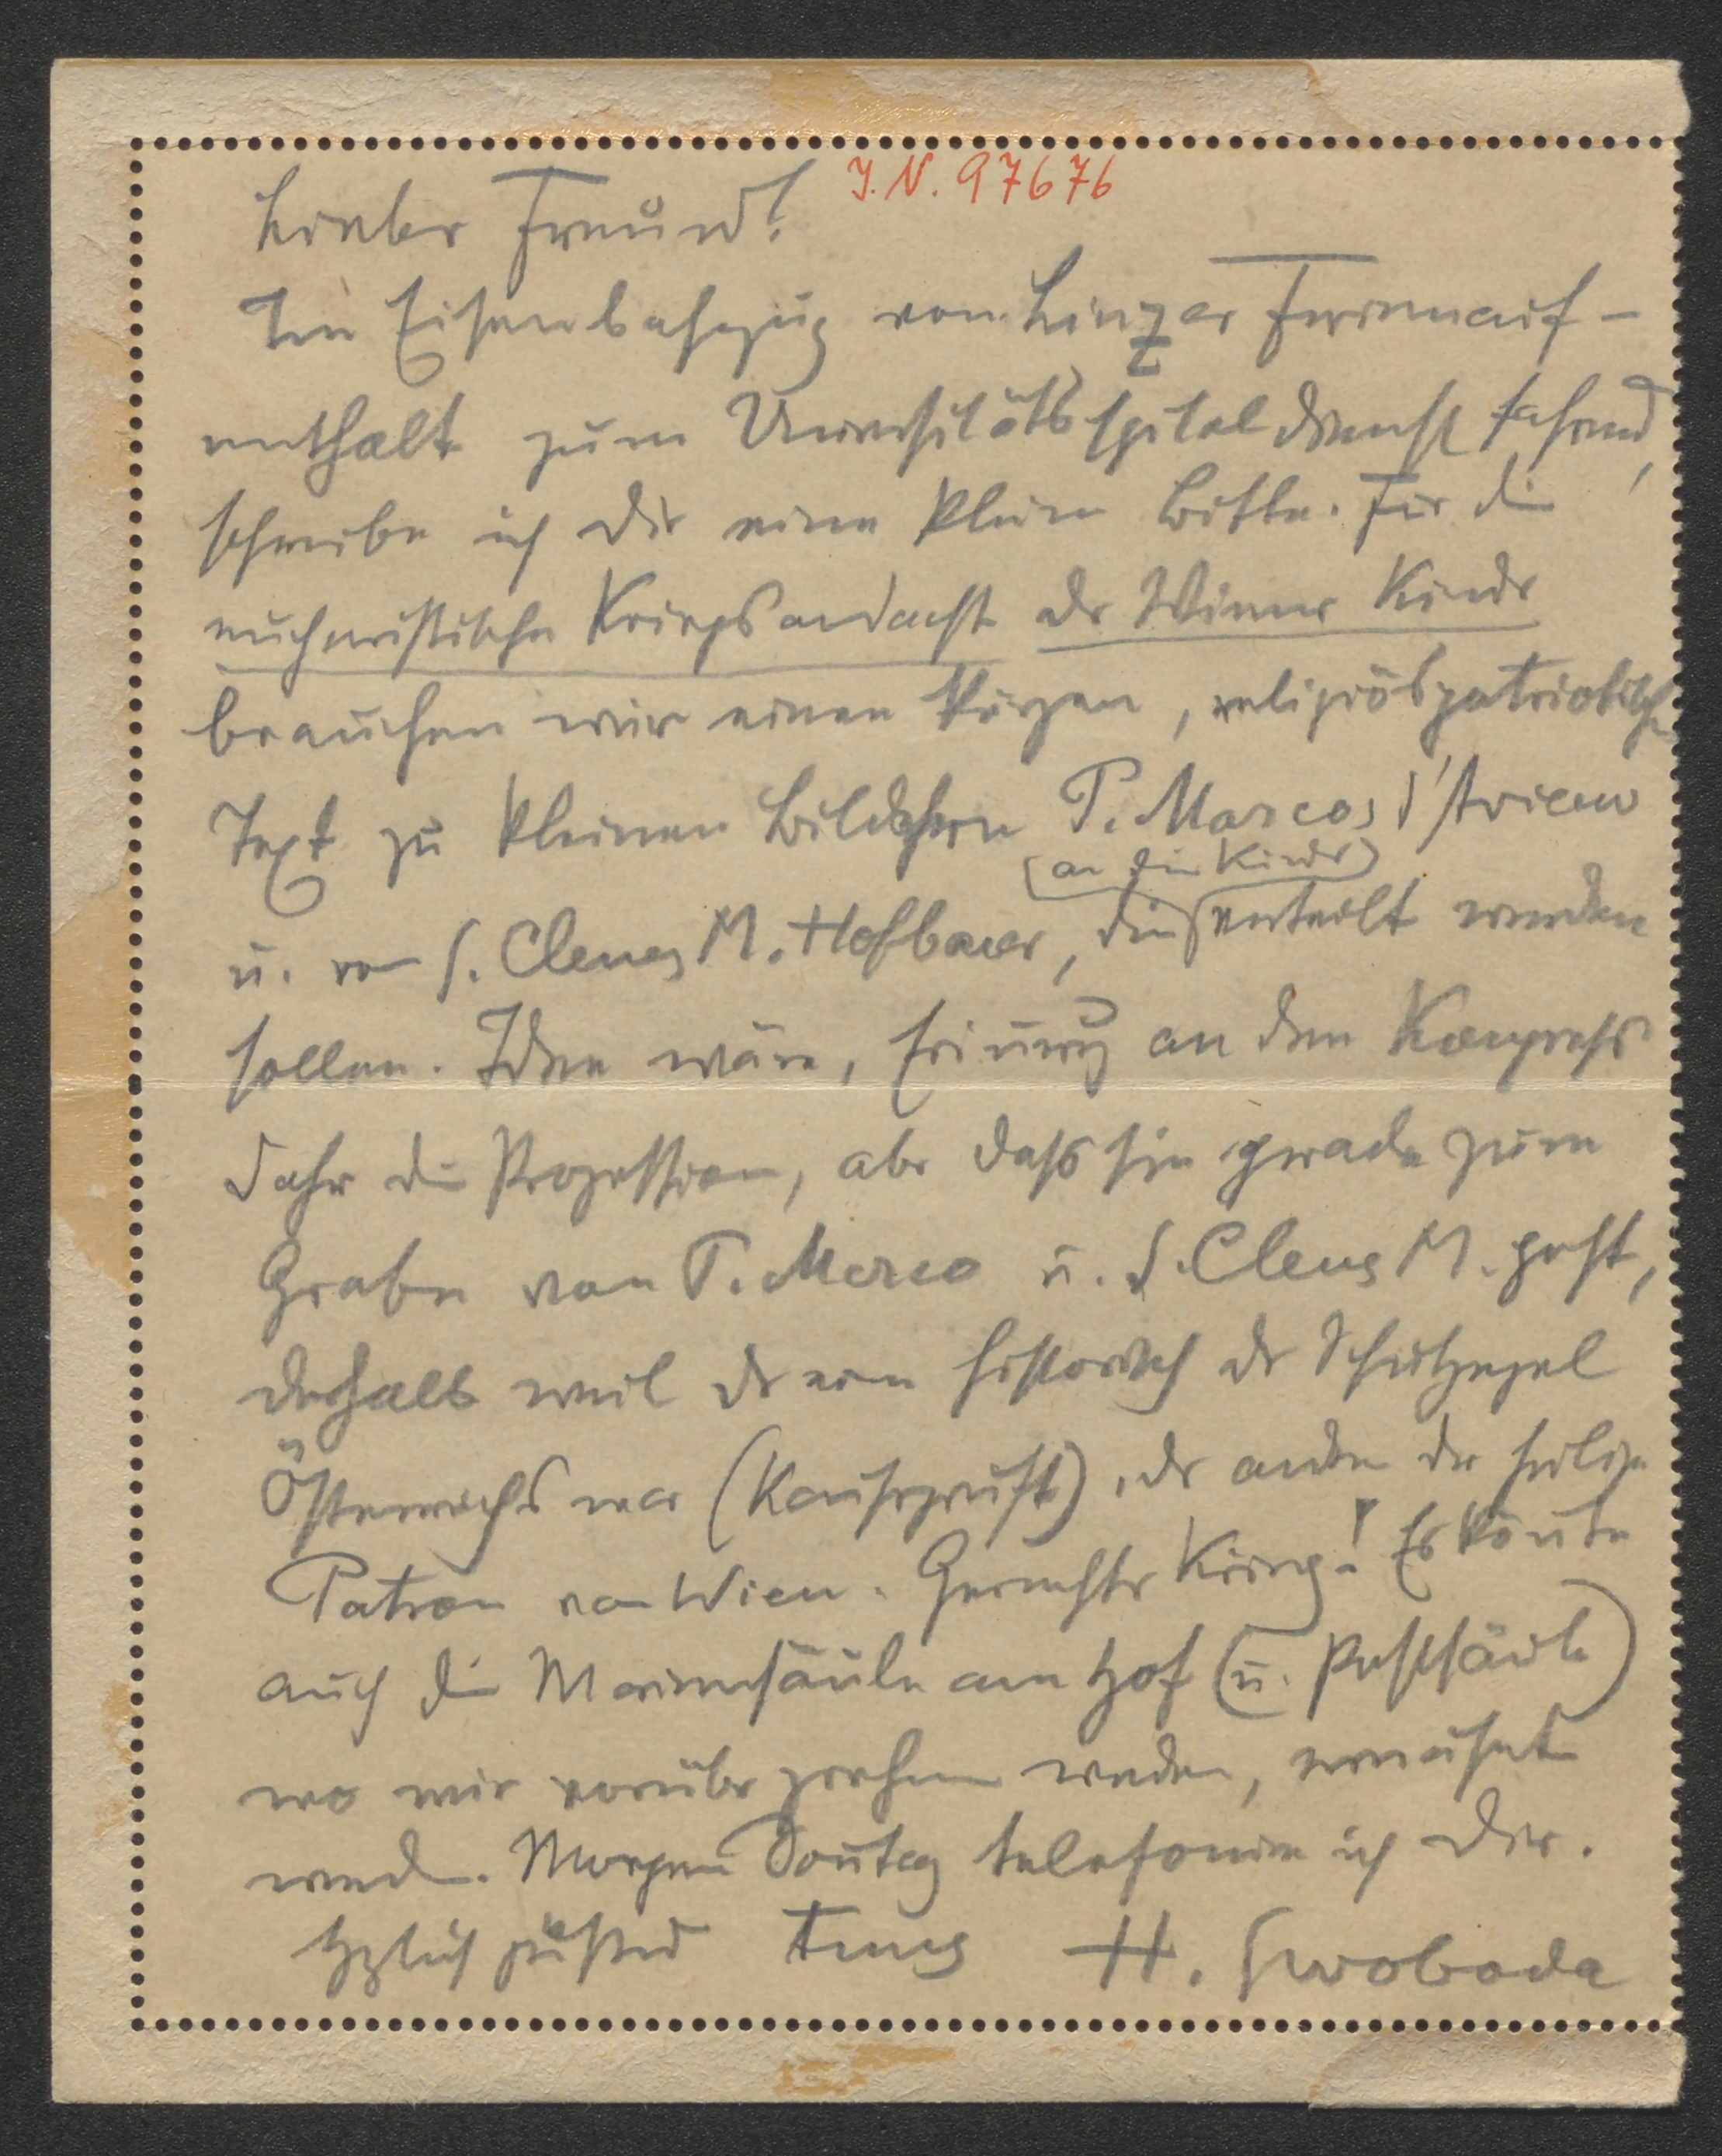 J. N. 97676
Lieber Freund!
Im Eisenbahnzug vom Linzer Ferienauf-
enthalt zum Universitätsspitaldienst fahrend,
schreibe ich Dir eine kleine Bitte. Für die
eucharistische Kriegsandacht der Wiener Kinder
brauchen wir einen kurzen, religiöspatriotisch
Text zu kleinen Bildchen P. Marcos d'Aviano
(an die Kinder)
u. von S. Clemens M. Hofbauer, die verteilt werden
sollen. Idee wäre, Erinnerung an den Kongress
daher die Prozession, aber dass sie gerade zum
Grabe von P. Marco u. S. Clemens M. geht,
deshalb weil der eine historisch der Schutzengel
Österreichs war (Kaisergruft), der andere der heilige
Patron von Wien. Gerechter Krieg! Es könnte
auch die Mariensäule am Hof (u. Pestsäule)
wo wir vorüber ziehen werden, erwähnt
werden. Morgen Sonntag telefoniere ich Dir.
Hzlich grüßend Treus H. Swoboda